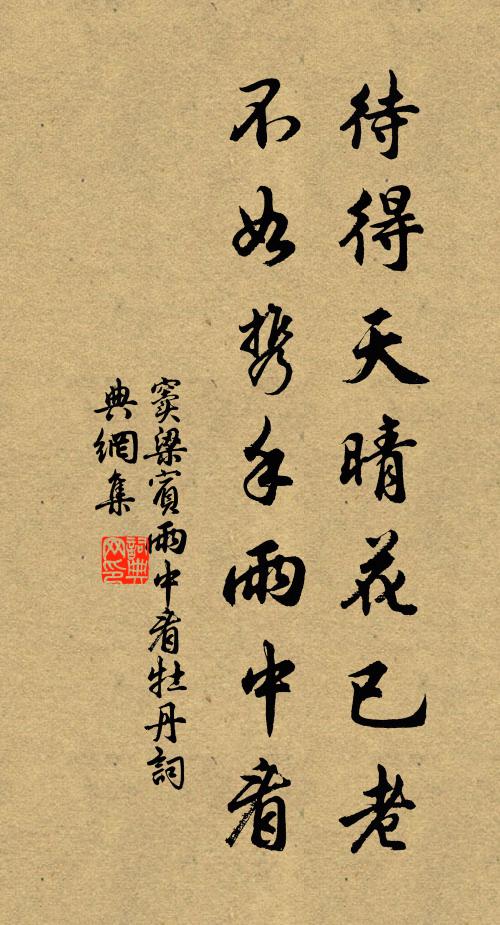 待得天晴花已老
不如携手雨中看
窦梁賓雨中看牡丹詞
典網集
詞典網印